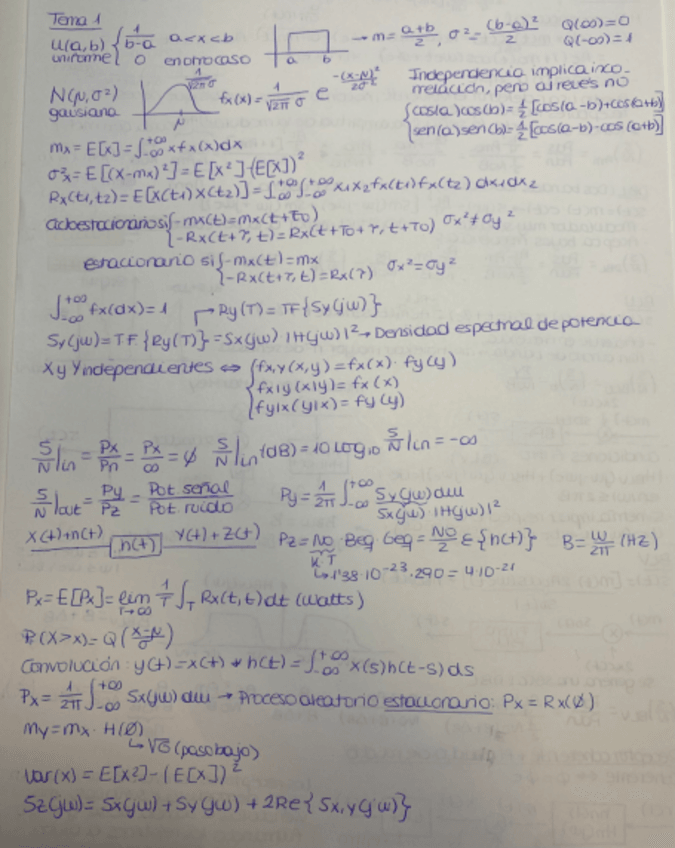 Tema 1
U(a,b) { 1/(b-a) a<x<b → m = (a+b)/2, σ² = (b-a)²/2 Q(∞)=0
uniforme 0 en otro caso a b Q(-∞)=1
N(μ,σ²) 1/(√2π σ) fx(x) = 1/(√2π σ) e^(-(x-μ)²/2σ²) Independencia implica inco-
gausiana μ rrelación, pero al revés no
{ cos(a)cos(b) = 1/2 [cos(a-b)+cos(a+b)]
sen(a)sen(b) = 1/2 [cos(a-b)-cos(a+b)]
mx = E[x] = ∫_-∞^+∞ x fx(x)dx
σ²x = E[(X-mx)²] = E[X²]-(E[X])²
Rx(t1,t2) = E[X(t1)X(t2)] = ∫_-∞^+∞ ∫_-∞^+∞ x1x2 fx(t1)fx(t2) dx1dx2
cicloestacionario si { -mx(t) = mx(t+T0)
-Rx(t+τ, t) = Rx(t+T0+τ, t+T0) σx² ≠ σy²
estacionario si { -mx(t) = mx
-Rx(t+τ, t) = Rx(τ) σx² = σy²
∫_-∞^+∞ fx(dx) = 1 → Ry(T) = TF{Sy(jw)}
Sy(jw) = TF{Ry(T)} = Sx(jw) |H(jw)|² → Densidad espectral de potencia
X y Y independientes ⇔ { fx,y(x,y) = fx(x) · fy(y)
fx|y(x|y) = fx(x)
fy|x(y|x) = fy(y)
S/N|in = Px/Pn = Px/∞ = ∅ S/N|in (dB) = 10 log10 S/N|in = -∞
S/N|out = Py/Pz = Pot señal/Pot ruido Py = 1/2π ∫_-∞^+∞ Sy(jw)dw
Sx(jw) |H(jw)|²
X(t)+n(t) h(t) Y(t)+Z(t) Pz = N0 · Beq Geq = N0/2 ε{h(t)} B = W/2π (Hz)
K·T
↳ 1'38·10^-23·290 = 4·10^-21
Px = E[Px] = lim T→∞ 1/T ∫_T Rx(t,t)dt (watts)
P(X>x) = Q((x-μ)/σ)
Convolución: y(t) = x(t) * h(t) = ∫_-∞^+∞ x(s)h(t-s)ds
Px = 1/2π ∫_-∞^+∞ Sx(jw)dw → Proceso aleatorio estacionario: Px = Rx(∅)
my = mx · H(∅)
↳ √G (paso bajo)
Var(x) = E[x²]-(E[x])²
Sz(jw) = Sx(jw) + Sy(jw) + 2Re{Sx,y(jw)}